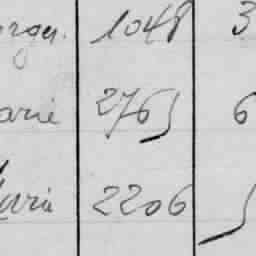 1048 3
arie 2765 6
Marie 2206 5